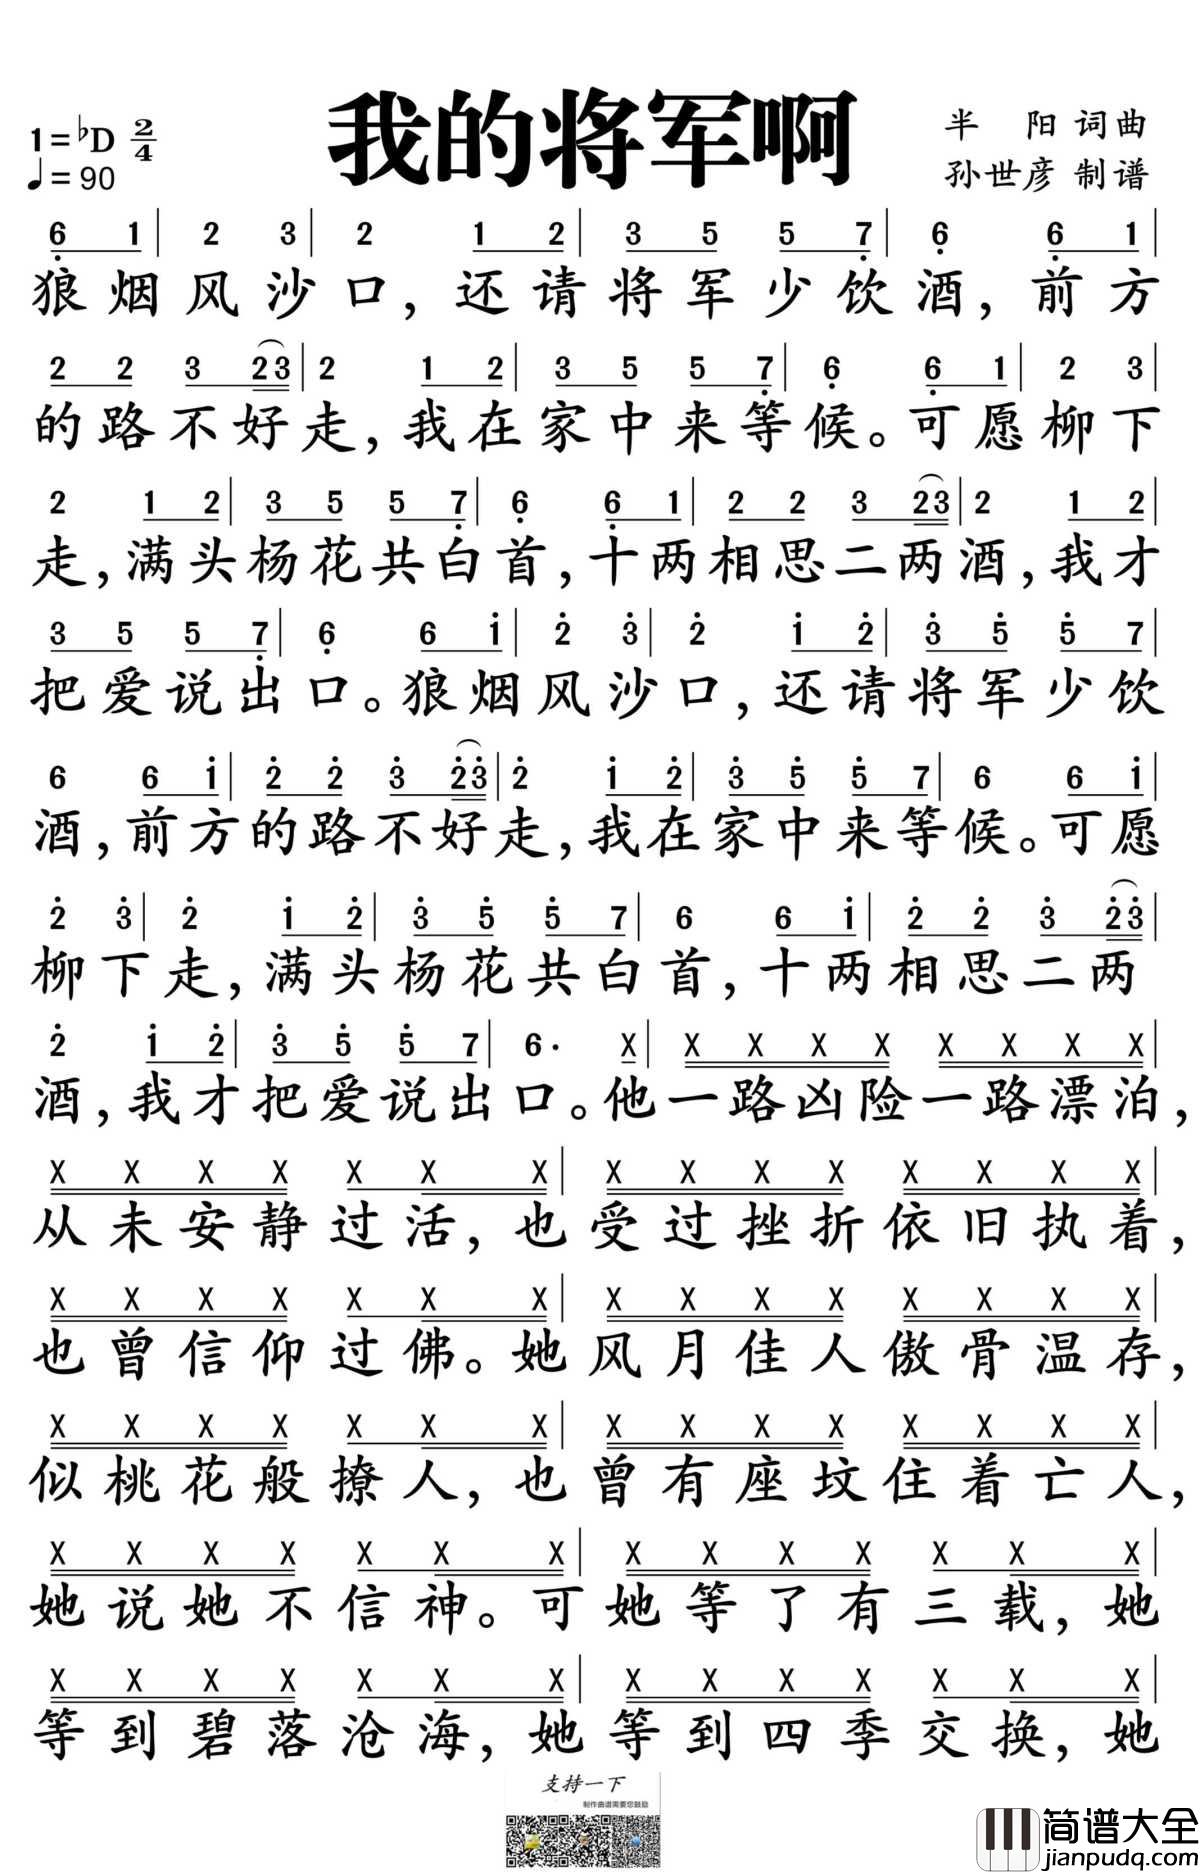 我的将军啊
1=♭D 2/4
♩=90
半 阳 词曲
孙世彦 制谱
6̣ 1 | 2 3 | 2 1 2 | 3 5 5 7̣ | 6̣ 6̣ 1 |
狼烟风沙口，还请将军少饮酒，前方
2 2 3 2 3 | 2 1 2 | 3 5 5 7̣ | 6̣ 6̣ 1 | 2 3 |
的路不好走，我在家中来等候。可愿柳下
2 1 2 | 3 5 5 7̣ | 6̣ 6̣ 1 | 2 2 3 2 3 | 2 1 2 |
走，满头杨花共白首，十两相思二两酒，我才
3 5 5 7̣ | 6̣ 6 1̇ | 2̇ 3̇ | 2̇ 1̇ 2̇ | 3̇ 5̇ 5̇ 7 |
把爱说出口。狼烟风沙口，还请将军少饮
6 6 1̇ | 2̇ 2̇ 3̇ 2̇ 3̇ | 2̇ 1̇ 2̇ | 3̇ 5̇ 5̇ 7 | 6 6 1̇ |
酒，前方的路不好走，我在家中来等候。可愿
2̇ 3̇ | 2̇ 1̇ 2̇ | 3̇ 5̇ 5̇ 7 | 6 6 1̇ | 2̇ 2̇ 3̇ 2̇ 3̇ |
柳下走，满头杨花共白首，十两相思二两
2̇ 1̇ 2̇ | 3̇ 5̇ 5̇ 7 | 6· X | X X X X X X X X |
酒，我才把爱说出口。他一路凶险一路漂泊，
X X X X X X X | X X X X X X X X |
从未安静过活，也受过挫折依旧执着，
X X X X X X X | X X X X X X X X |
也曾信仰过佛。她风月佳人傲骨温存，
X X X X X X X | X X X X X X X X |
似桃花般撩人，也曾有座坟住着亡人，
X X X X X X X | X X X X X X X |
她说她不信神。可她等了有三载，她
X X X X X X X | X X X X X X X |
等到碧落沧海，她等到四季交换，她
支持一下
制作曲谱需要您鼓励
简谱大全
jianpudq.com